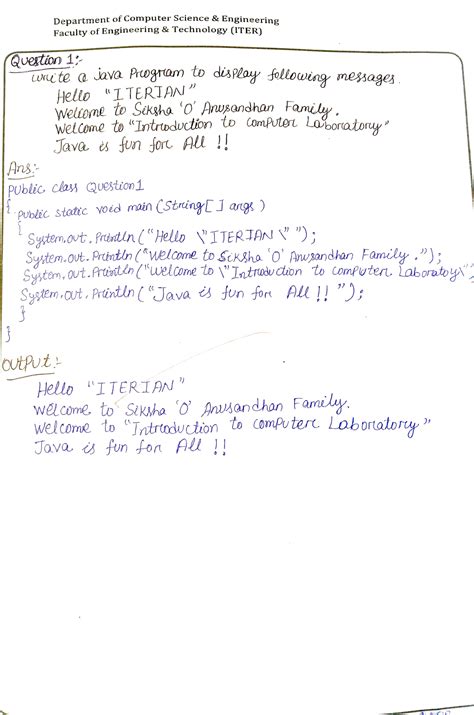 Department of Computer Science & Engineering
Faculty of Engineering & Technology (ITER)
Question 1:-
Write a Java Program to display following messages.
Hello "ITERIAN"
Welcome to Siksha 'O' Anusandhan Family.
Welcome to "Introduction to Computer Laboratory"
Java is fun for All !!
Ans:-
public class Question1
{ public static void main (String[] args)
{
System.out.Println("Hello \"ITERIAN\"");
System.out.Println("Welcome to Siksha 'O' Anusandhan Family.");
System.out.Println("Welcome to \"Introduction to computer Laboratoy\"
System.out.Println("Java is fun for All !!");
}
}
OUTPUT:-
Hello "ITERIAN"
Welcome to Siksha 'O' Anusandhan Family.
Welcome to "Introduction to computer Laboratory"
Java is fun for All !!